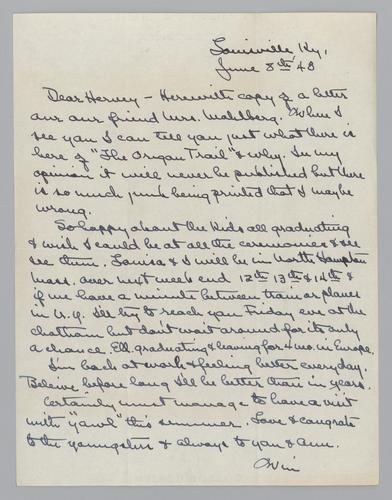 Louisville Ky,
June 8th 48
Dear Hervey – Herewith copy of a letter
our friend Mrs. Maldberg. When I
see you I can tell you just what there is
here of "The Oregon Trail" & why. In my
opinion it will never be published but there
is so much junk being printed that I maybe
wrong.
So happy about the kids all graduating
& wish I could be at all the ceremonies & see
see them. Louisa & I will be in North Hampton
Mass. over next week end 12th 13th & 14th &
if we have a minute between trains or planes
in N.Y. I'll try to reach you Friday eve at the
Chatham but don't wait around for its only
a chance. Ell. graduating & leaving for 4 mo. in Europe.
I'm back at work & feeling better everyday.
Beleive before long I'll be better than in years.
Certainly must manage to have a visit
with "yawl" this summer. Love & congrats
to the youngsters & always to you & Ann.